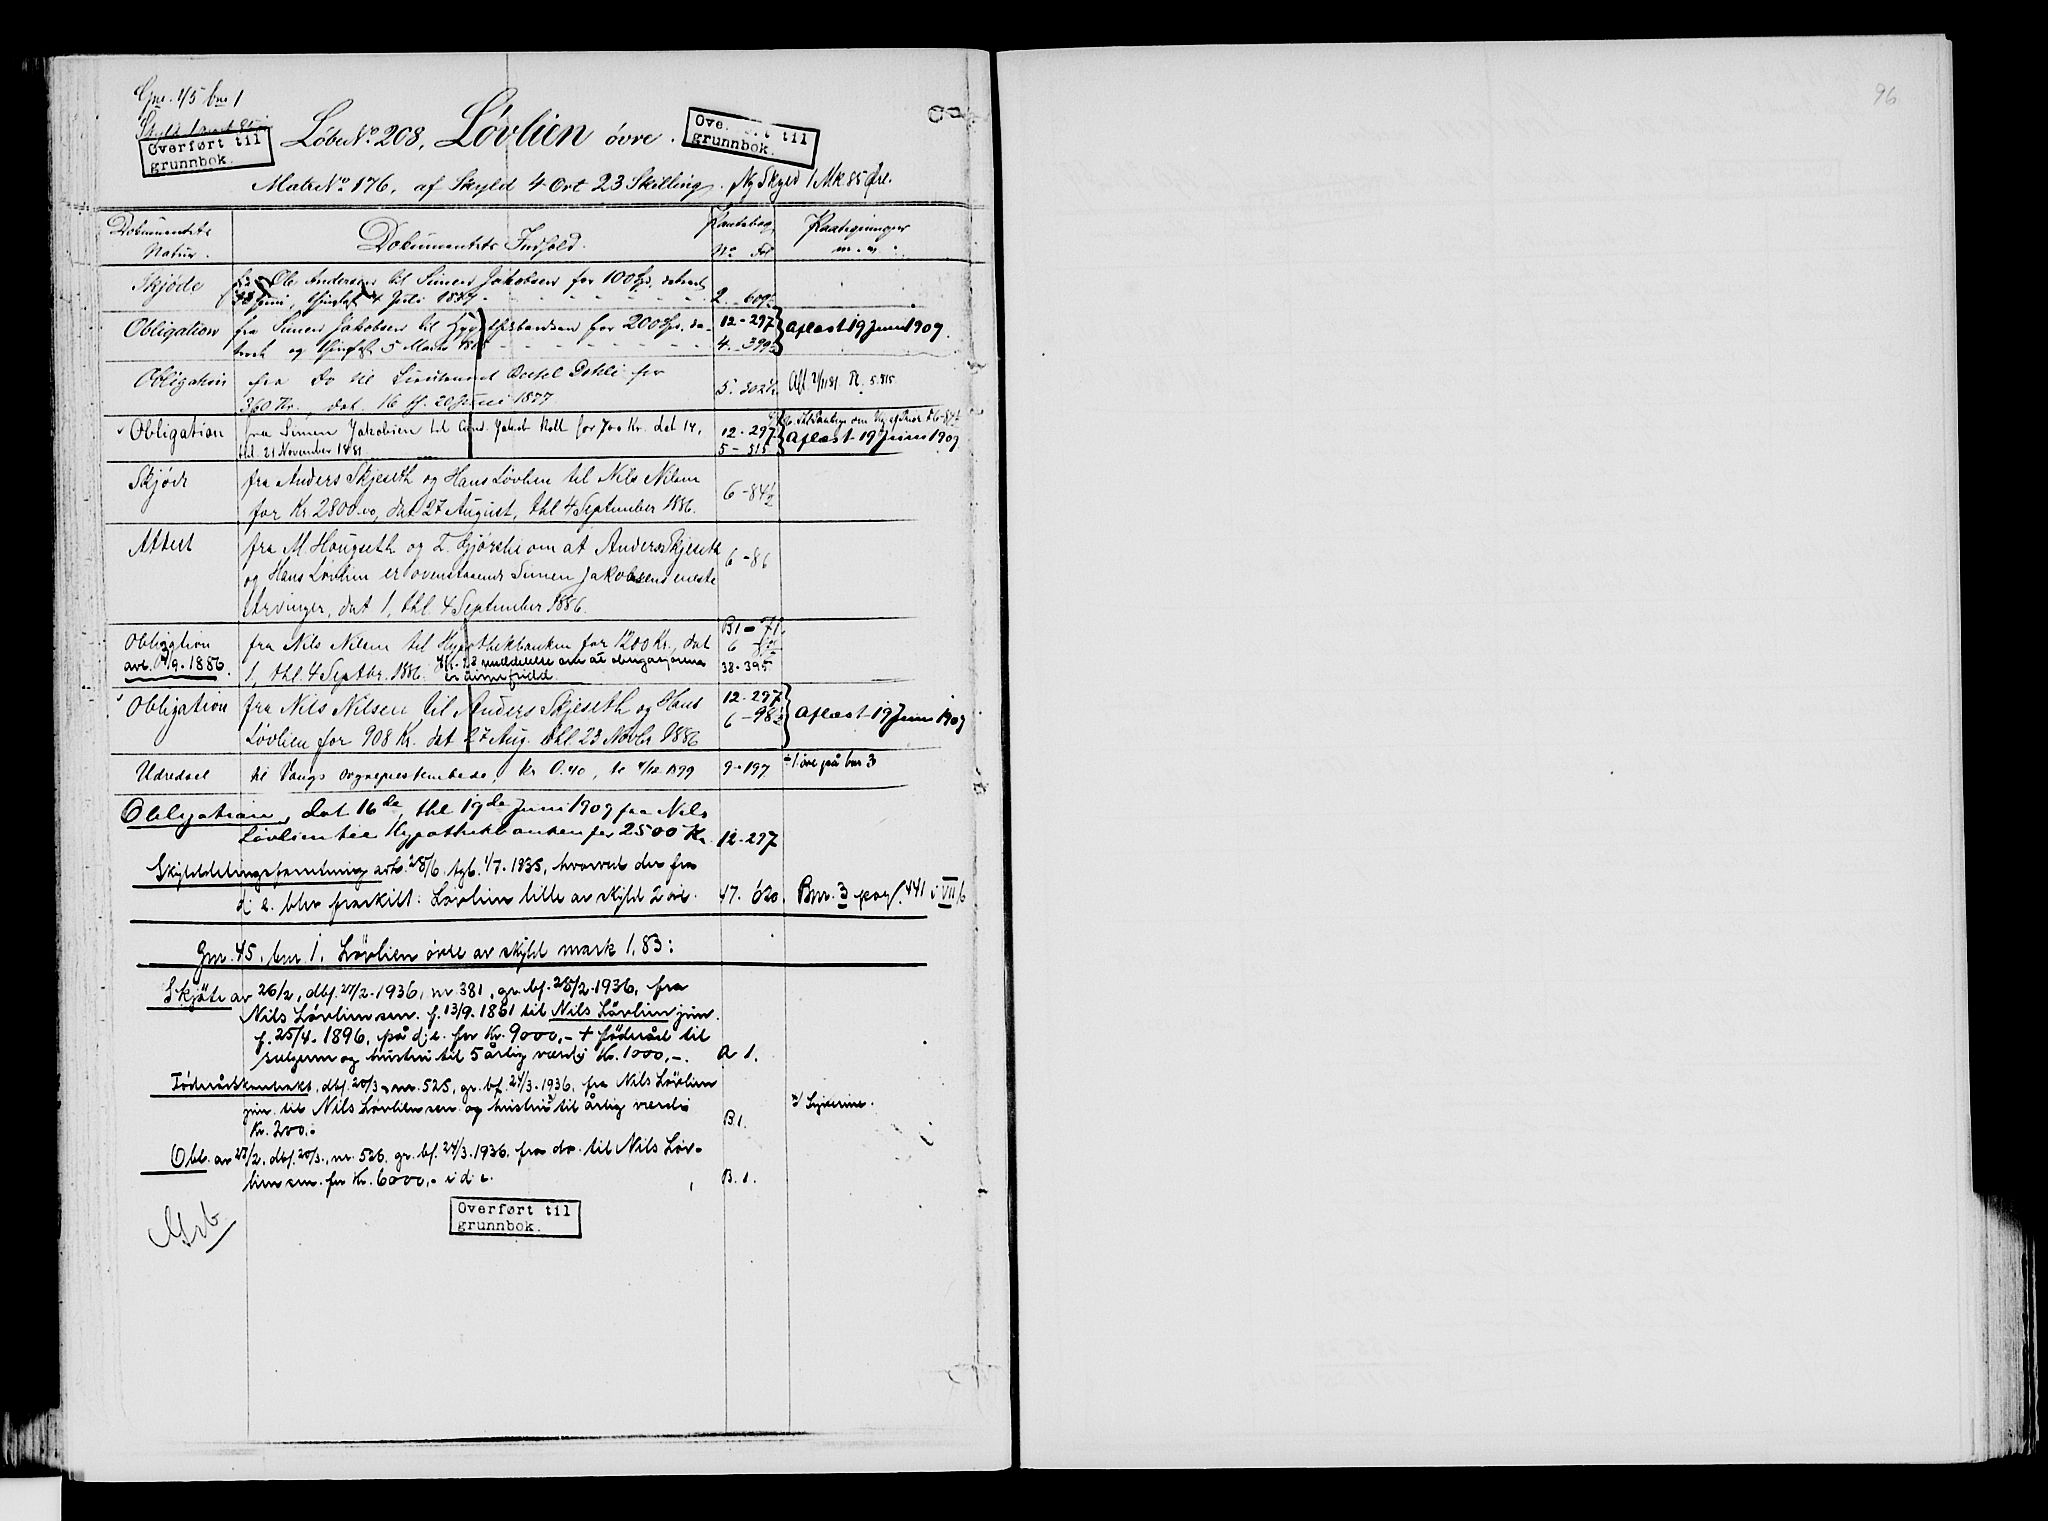 Gnr. 45 bnr 1
Overført til
grunnbok.
LøbeNo. 208, Løvlien øvre.
Overført til
grunnbok.
MatrNo 176, af Skyld 4 Ort 23 Skilling. Ny Skyld 1 Mk 85 Øre.
Dokumentets
Natur.
Dokumentets Indhold.
Pantebog
No Fol
Paategninger
m. m.
Skjøde
fra Ole Andersen til Simen Jakobsen for 100 Spd, dateret
Juni, thinglæst 4 Juli
2 - 609
Obligation
fra Simen Jakobsen til Hypothekbanken for 200 Spd. da-
teret og thinglæst 5 Marts
12-297
4-399
Aflæst 19 Juni 1909.
Obligation
fra Do til Lieutenant Bertel Dahli for
360 Kr., dat. 16 tl. 20 Juni 1877
5-
Afl. 81 Pl. 5.815
Obligation
fra Simen Jakobsen til Cand. Jakob Koll for 700 Kr. dat 14,
thl. 21 November 1881
12-297
5-515
Aflæst 19 Juni 1909
Skjøde
fra Anders Skjeseth og Hans Løvlien til Nils Nilsen
for Kr 2800.00, dat 27 August, thl 4 September 1886.
6-84½
Attest
fra M Hougseth og T. Gjørslie om at Anders Skjeseth
og Hans Løvlien er ovenstaaende Simen Jakobsens eneste
Arvinger, dat 1, thl. 4 September 1886.
6-86
Obligation
avl. 4/9. 1886.
fra Nils Nilsen til Hypothekbanken for 1200 Kr., dat
1, thl. 4 Septbr. 1886. meddelelse om at obligasjonen
er innfridd.
B1-71
6
38-395
Obligation
fra Nils Nilsen til Anders Skjeseth og Hans
Løvlien for 908 Kr. dat 27 Aug. thl. 23 Novbr 1886
12-297
6-98½
Aflæst 19 Juni 1909
Udredsel
til Vangs Sognepræstembede, Kr 0.40, tl 4/12 1899
9-197
÷ 1 øre på bnr 3
Obligation, dat 16de, thl 19de Juni 1909 fra Nils
Løvlien til Hypothekbanken for 2500 Kr.
12-297
Skylddelingsforretning avh. 28/6. tgl. 1/7. 1935, hvorved der fra
d. e. blev fraskilt: Løvlien lille av skyld 2 øre.
47. 620.
Bnr. 3 pag. 441 i VII b
Gnr. 45. bnr. 1. Løvlien øvre av skyld mark 1,83:
Skjøte av 26/2, dbf. 27/2-1936, nr. 381, gr. bf. 28/2-1936, fra
Nils Løvlien sen. f. 13/9. 1861 til Nils Løvlien jun.
f. 25/4. 1896, på d. e. for Kr. 9000,- + føderåd til
selgeren og hustru til 5 årlig værdi Kr. 1000,-.
A 1.
Føderådskontrakt, dbf. 20/3, nr. 525, gr. bf. 24/3-1936, fra Nils Løvlien
jun. til Nils Løvlien sen. og hustru x) til årlig værdi
Kr. 200.-
B.1.
Obl. av 27/2, dbf. 20/3, nr. 526. gr. bf. 24/3. 1936. fra do. til Nils Løv-
lien sen. for Kr. 6000,- i d. e.
B. 1.
Overført til
grunnbok.
96